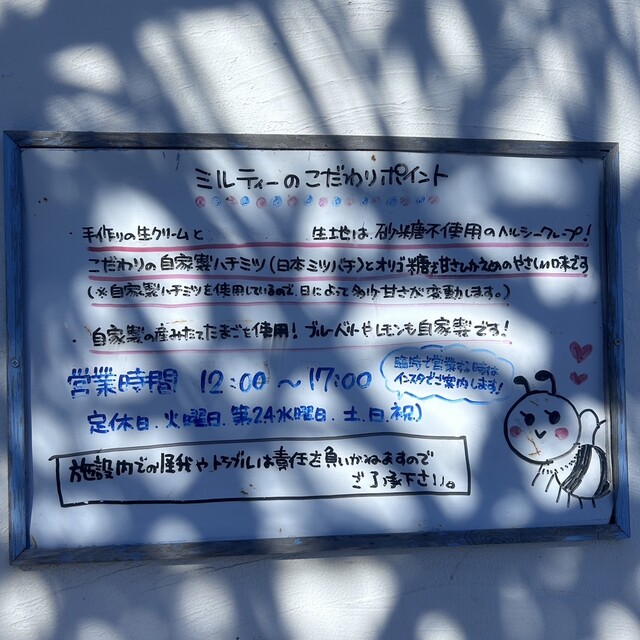 ミルティーのこだわりポイント
・手作りの生クリームと 生地は、砂糖不使用のヘルシークレープ!
こだわりの自家製ハチミツ(日本ミツバチ)とオリゴ糖で甘さひかえめのやさしい味です
(※自家製ハチミツを使用しているので、日によって多少甘さが変動します。)
・自家製の産みたてたまごを使用! ブルーベリーやレモンも自家製です!
営業時間 12:00 〜 17:00
臨時で営業する時は
インスタでご案内します!
定休日.火曜日.第2.4水曜日.土.日.祝)
施設内での怪我やトラブルは責任を負いかねますので
ご了承下さい。